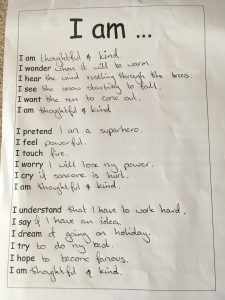 I am ...
I am thoughtful & kind.
I wonder when it will be warm
I hear the wind rustling through the trees.
I see the snow starting to fall.
I want the sun to come out.
I am thoughtful & kind
I pretend I am a superhero.
I feel powerful.
I touch fire.
I worry I will lose my power.
I cry if someone is hurt.
I am thoughtful & kind.
I understand that I have to work hard.
I say if I have an idea.
I dream of going on holiday.
I try to do my best.
I hope to become famous.
I am thoughtful & kind.